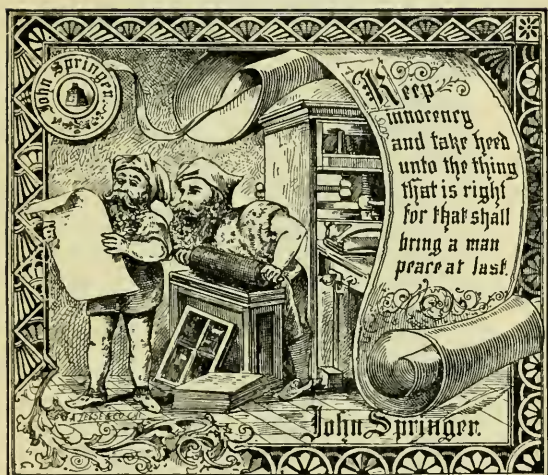 John Springer.
Keep
innocency
and take heed
unto the thing
that is right
for that shall
bring a man
peace at last.
John Springer.